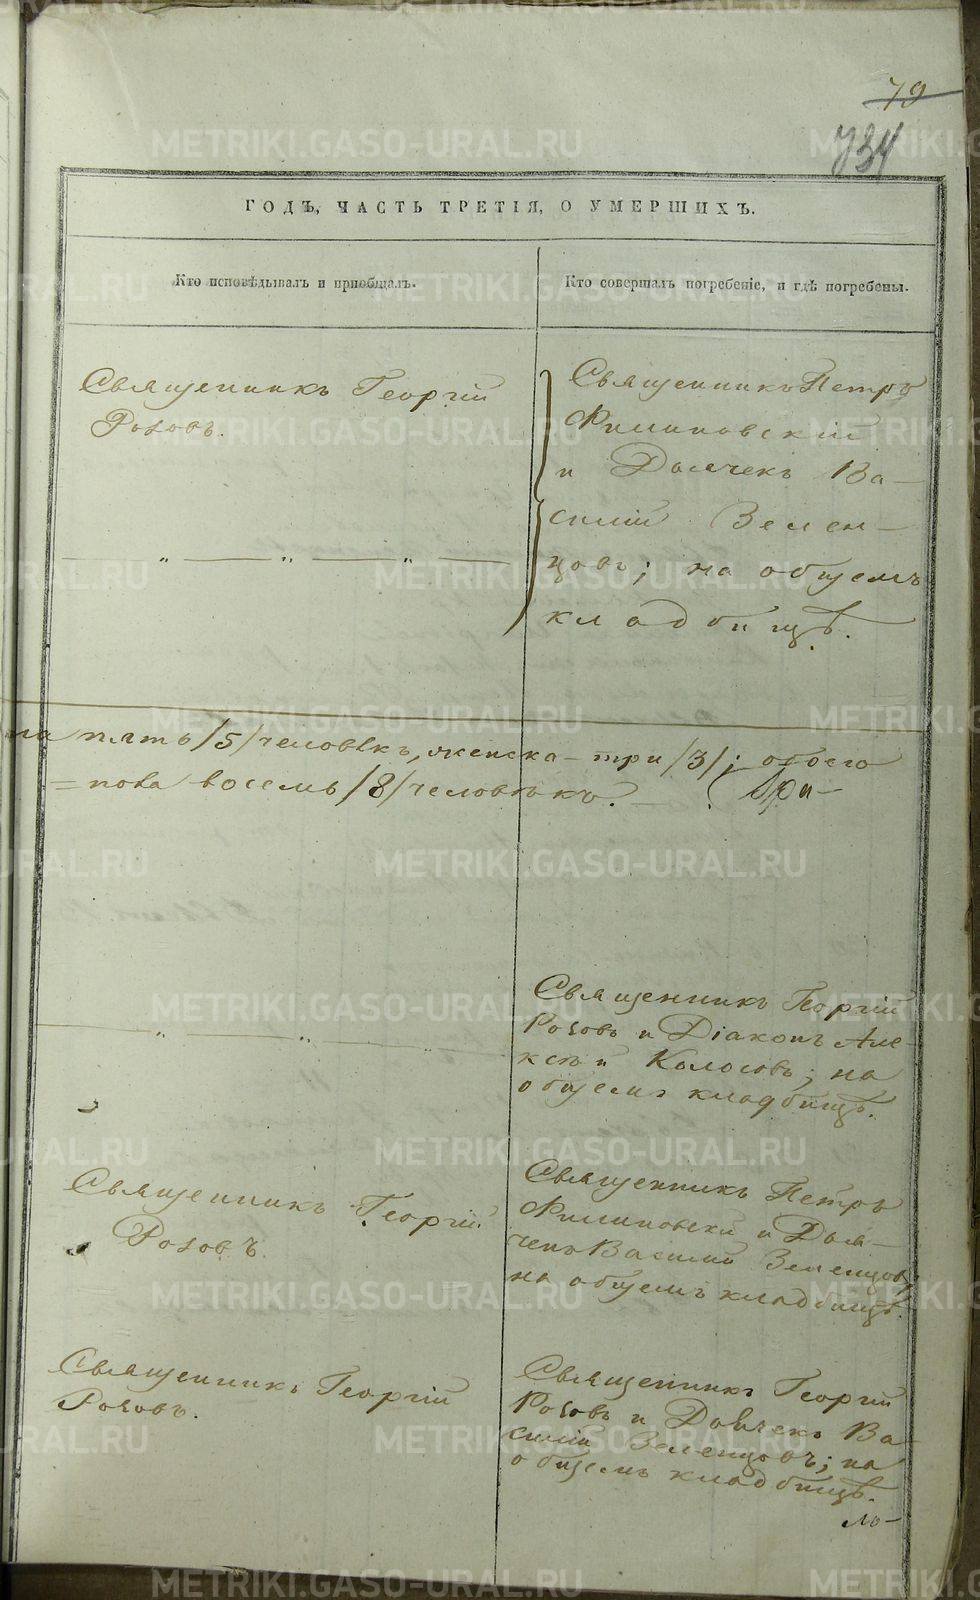 79
734
ГОДЪ, ЧАСТЬ ТРЕТІЯ, О УМЕРШИХЪ.
Кто исповѣдывалъ и пріобщалъ.
Кто совершалъ погребеніе, и гдѣ погребены.
Священникъ Георгій
Роговъ.
Священникъ Петръ
Филиповскій
и Дьячекъ Ва-
силій Зелен-
цовъ; на общемъ
кладбищѣ.
на пять /5/ человѣкъ, женска - три /3/; обоего
= пола восемь /8/ человѣкъ.
Священникъ Георгій
Роговъ и Діаконъ Але-
ксѣй Колосовъ; на
общемъ кладбищѣ.
Священникъ Георгій
Роговъ.
Священникъ Петръ
Филиповскій и Дья-
чекъ Василій Зеленцовъ;
на общемъ кладбищѣ.
Священникъ Георгій
Роговъ.
Священникъ Георгій
Роговъ и Дьячекъ Ва-
силій Зеленцовъ; на
общемъ кладбищѣ.
METRIKI.GASO-URAL.RU